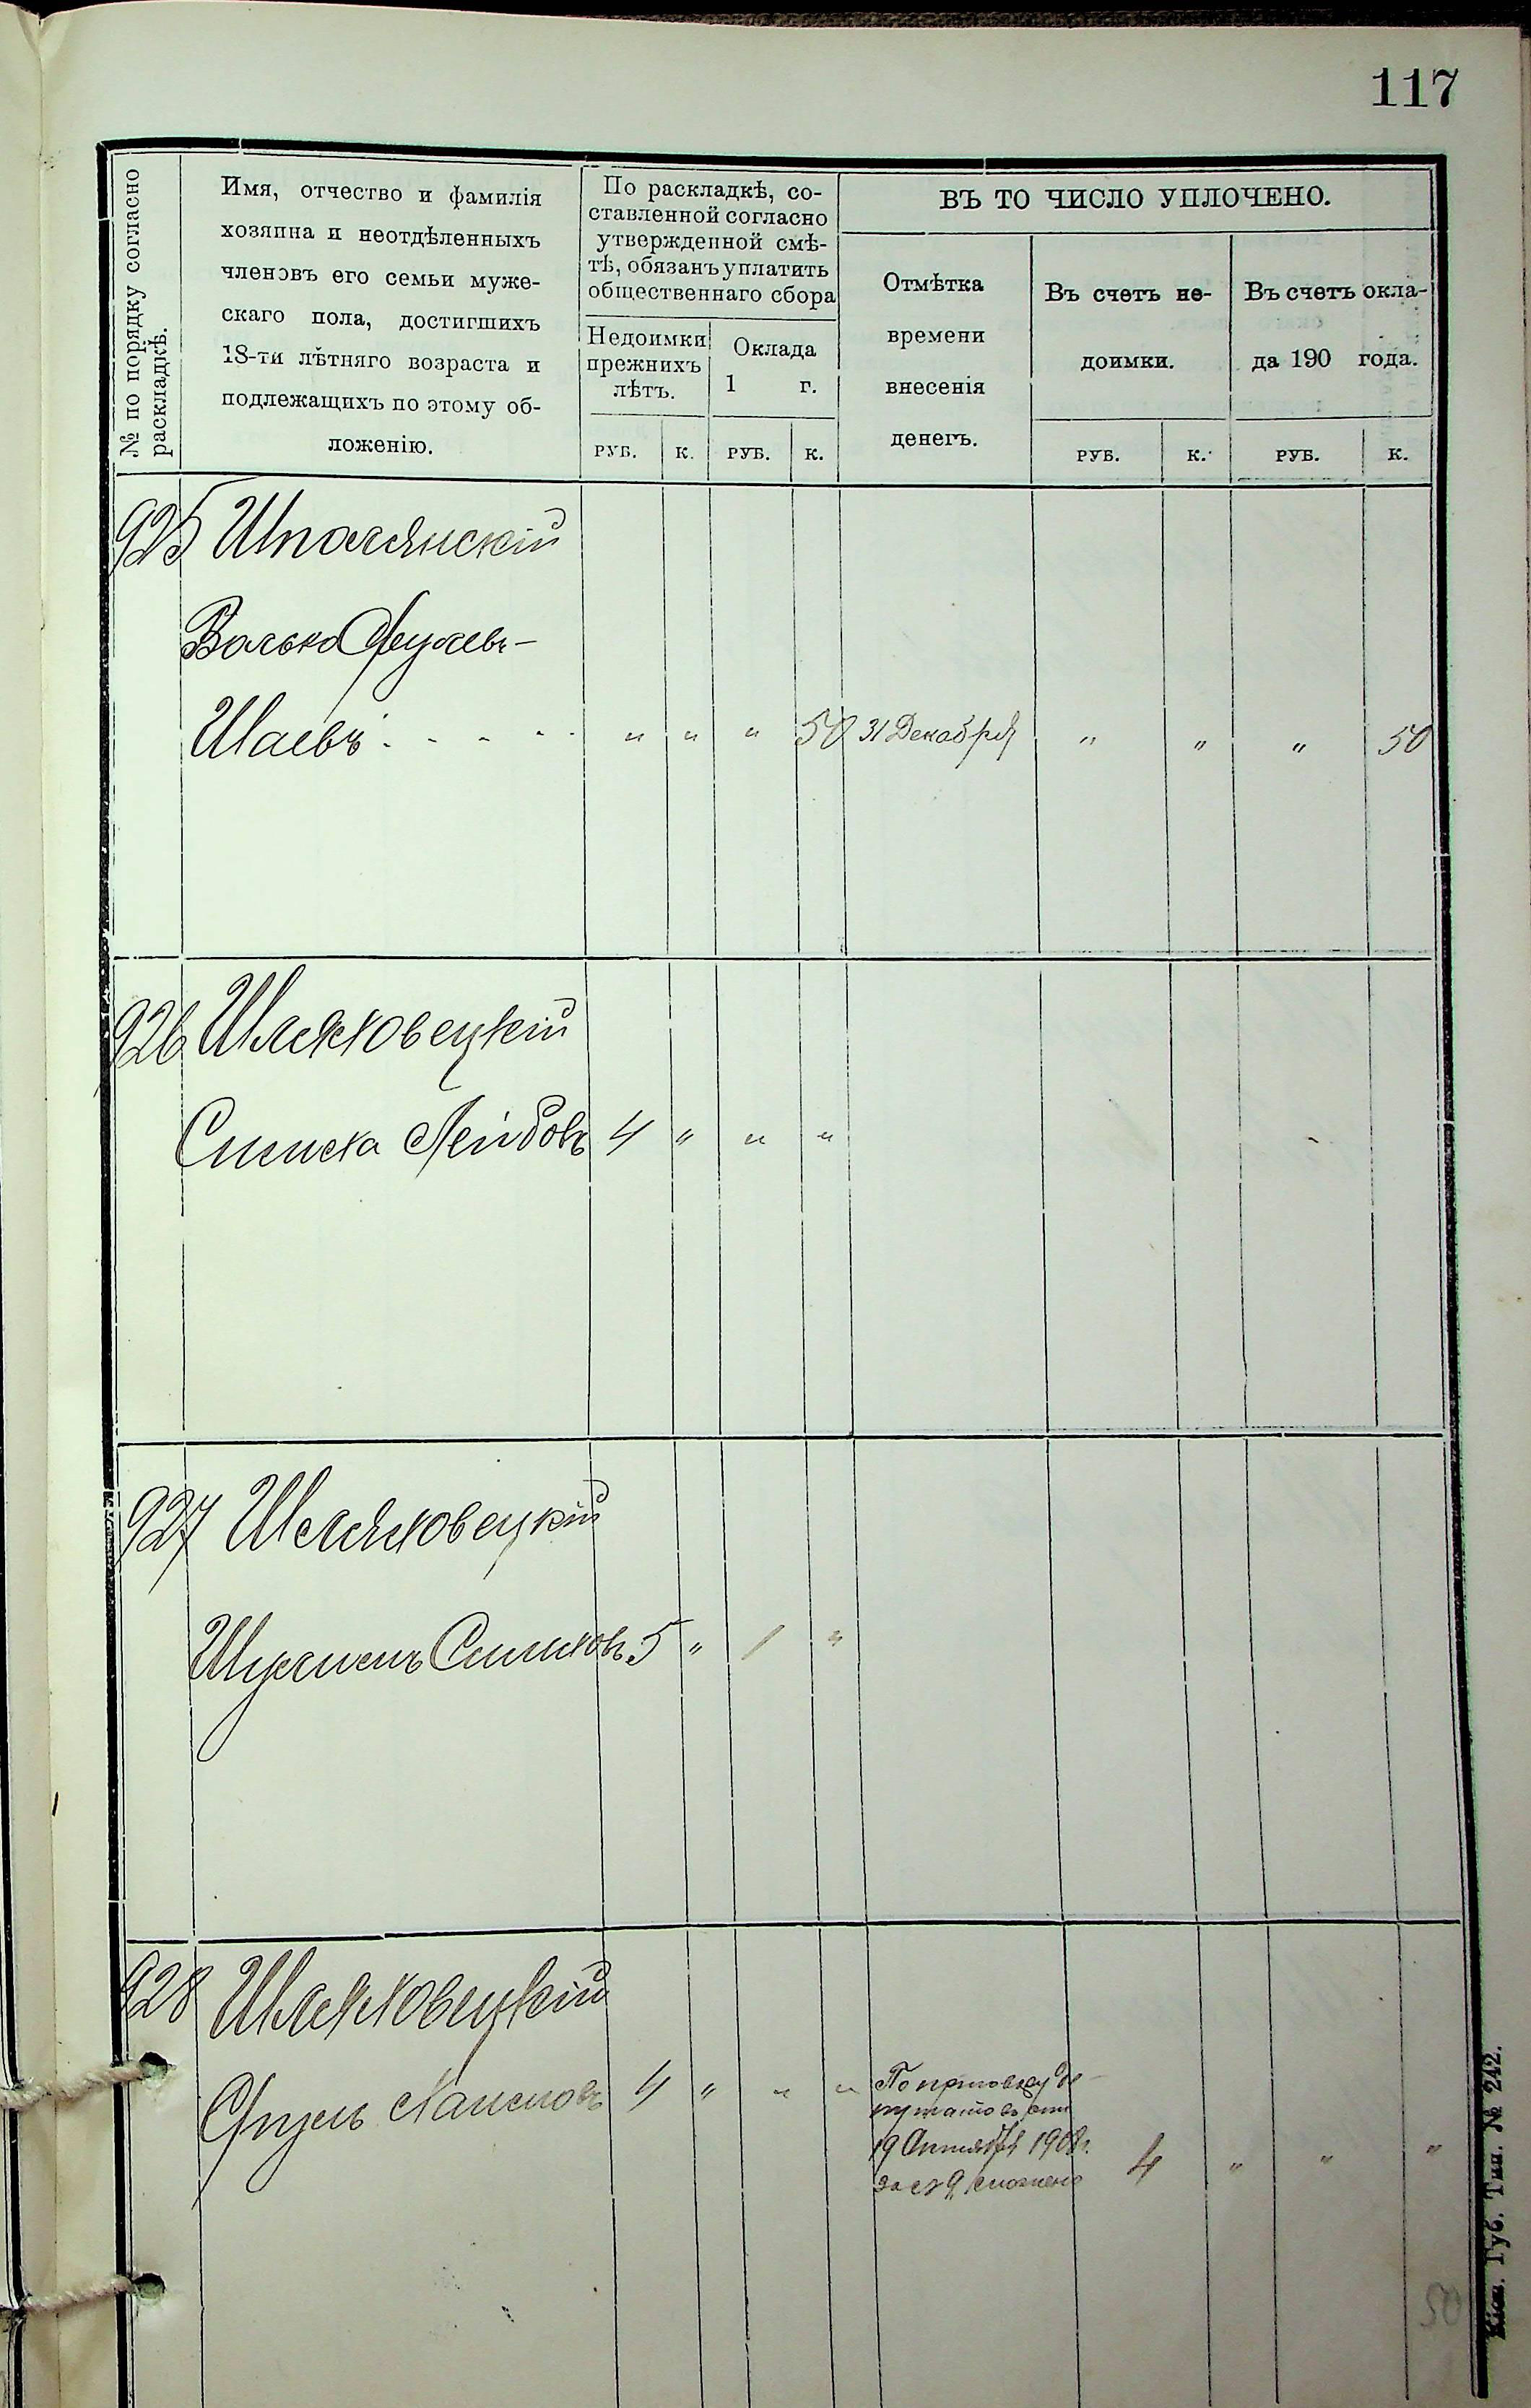 117
№ по порядку согласно
раскладкѣ.
Имя, отчество и фамилія
хозяина и неотдѣленныхъ
членовъ его семьи муже-
скаго пола, достигшихъ
18-ти лѣтняго возраста и
подлежащихъ по этому об-
ложенію.
По раскладкѣ, со-
ставленной согласно
утвержденной смѣ-
тѣ, обязанъ уплатить
общественнаго сбора
Недоимки
прежнихъ
лѣтъ.
Оклада
1 г.
ВЪ ТО ЧИСЛО УПЛОЧЕНО.
Отмѣтка
времени
внесенія
денегъ.
Въ счетъ не-
доимки.
Въ счетъ окла-
да 190 года.
РУБ. К. РУБ. К. РУБ. К. РУБ. К.
925 Шполянскій
Волько
Шаевъ - - - - - " " " 50 31 Декабря " " " 50
926 Шляховецкій
Симха Лейбовъ 4 " " "
927 Шляховецкій
Симховъ 5 " 1 "
928 Шляховецкій
4 " " "
19 Октября 1908 г.
за № 9 сложено 4 " " "
50
Кіев. Губ. Тип. № 242.